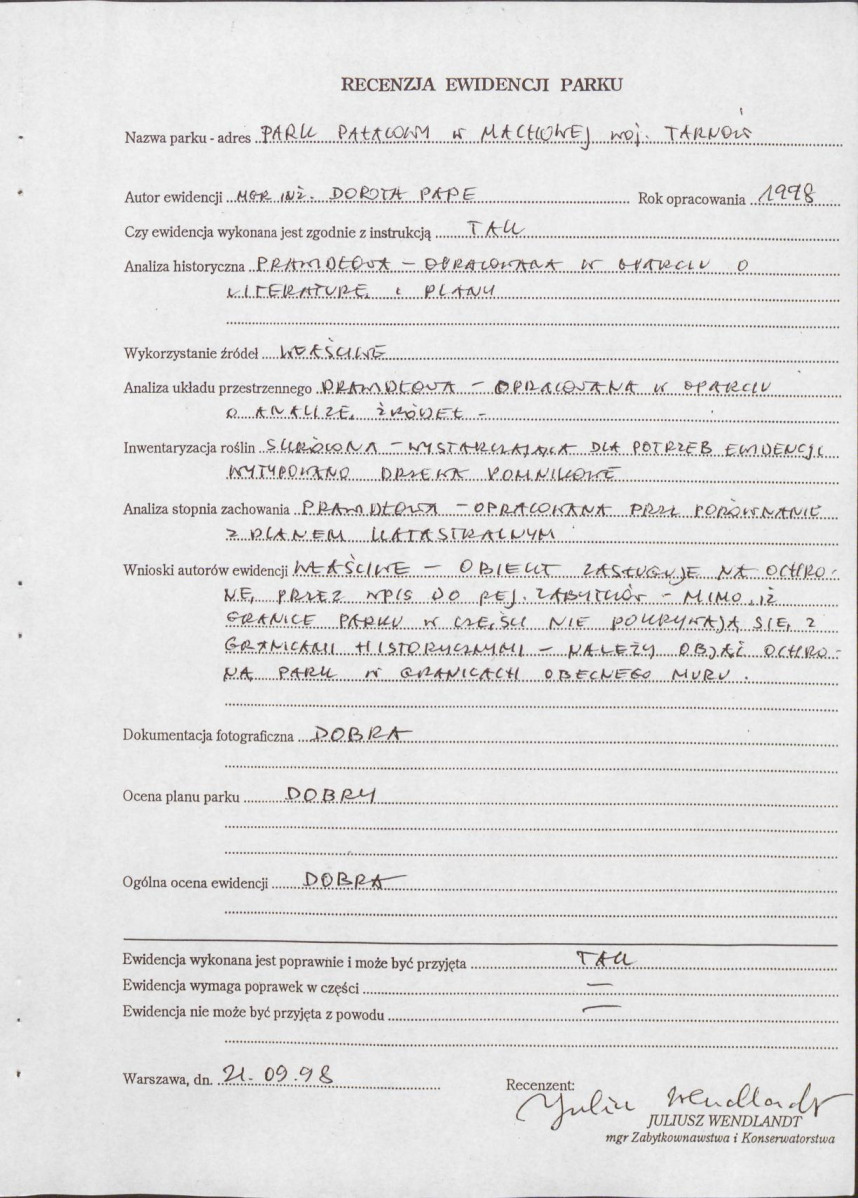 RECENZJA EWIDENCJI PARKU
Nazwa parku - adres PARK PAŁACOWY W MACHOWEJ WOJ. TARNÓW
Autor ewidencji MGR INŻ. DOROTA PAPE Rok opracowania 1998
Czy ewidencja wykonana jest zgodnie z instrukcją TAK
Analiza historyczna PRAWIDŁOWA – OPRACOWANA W OPARCIU O
LITERATURĘ I PLANY
Wykorzystanie źródeł WŁAŚCIWE
Analiza układu przestrzennego PRAWIDŁOWA – OPRACOWANA W OPARCIU
O ANALIZĘ ŹRÓDEŁ –
Inwentaryzacja roślin SKRÓCONA – WYSTARCZAJĄCA DLA POTRZEB EWIDENCJI
WYTYPOWANO DRZEWA POMNIKOWE
Analiza stopnia zachowania PRAWIDŁOWA – OPRACOWANA PRZEZ PORÓWNANIE
Z PLANEM KATASTRALNYM
Wnioski autorów ewidencji WŁAŚCIWE – OBIEKT ZASŁUGUJE NA OCHRO-
NĘ PRZEZ WPIS DO REJ. ZABYTKÓW – MIMO, IŻ
GRANICE PARKU W CZĘŚCI NIE POKRYWAJĄ SIĘ Z
GRANICAMI HISTORYCZNYMI – NALEŻY OBJĄĆ OCHRO-
NĄ PARK W GRANICACH OBECNEGO MURU.
Dokumentacja fotograficzna DOBRA
Ocena planu parku DOBRY
Ogólna ocena ewidencji DOBRA
Ewidencja wykonana jest poprawnie i może być przyjęta TAK
Ewidencja wymaga poprawek w części —
Ewidencja nie może być przyjęta z powodu —
Warszawa, dn. 21.09.98
Recenzent:
Juliusz Wendlandt
JULIUSZ WENDLANDT
mgr Zabytkownawstwa i Konserwatorstwa